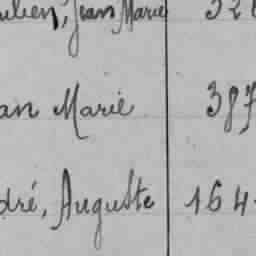 ulien, Jean Marie 326
an Marie 387
dré, Auguste 164